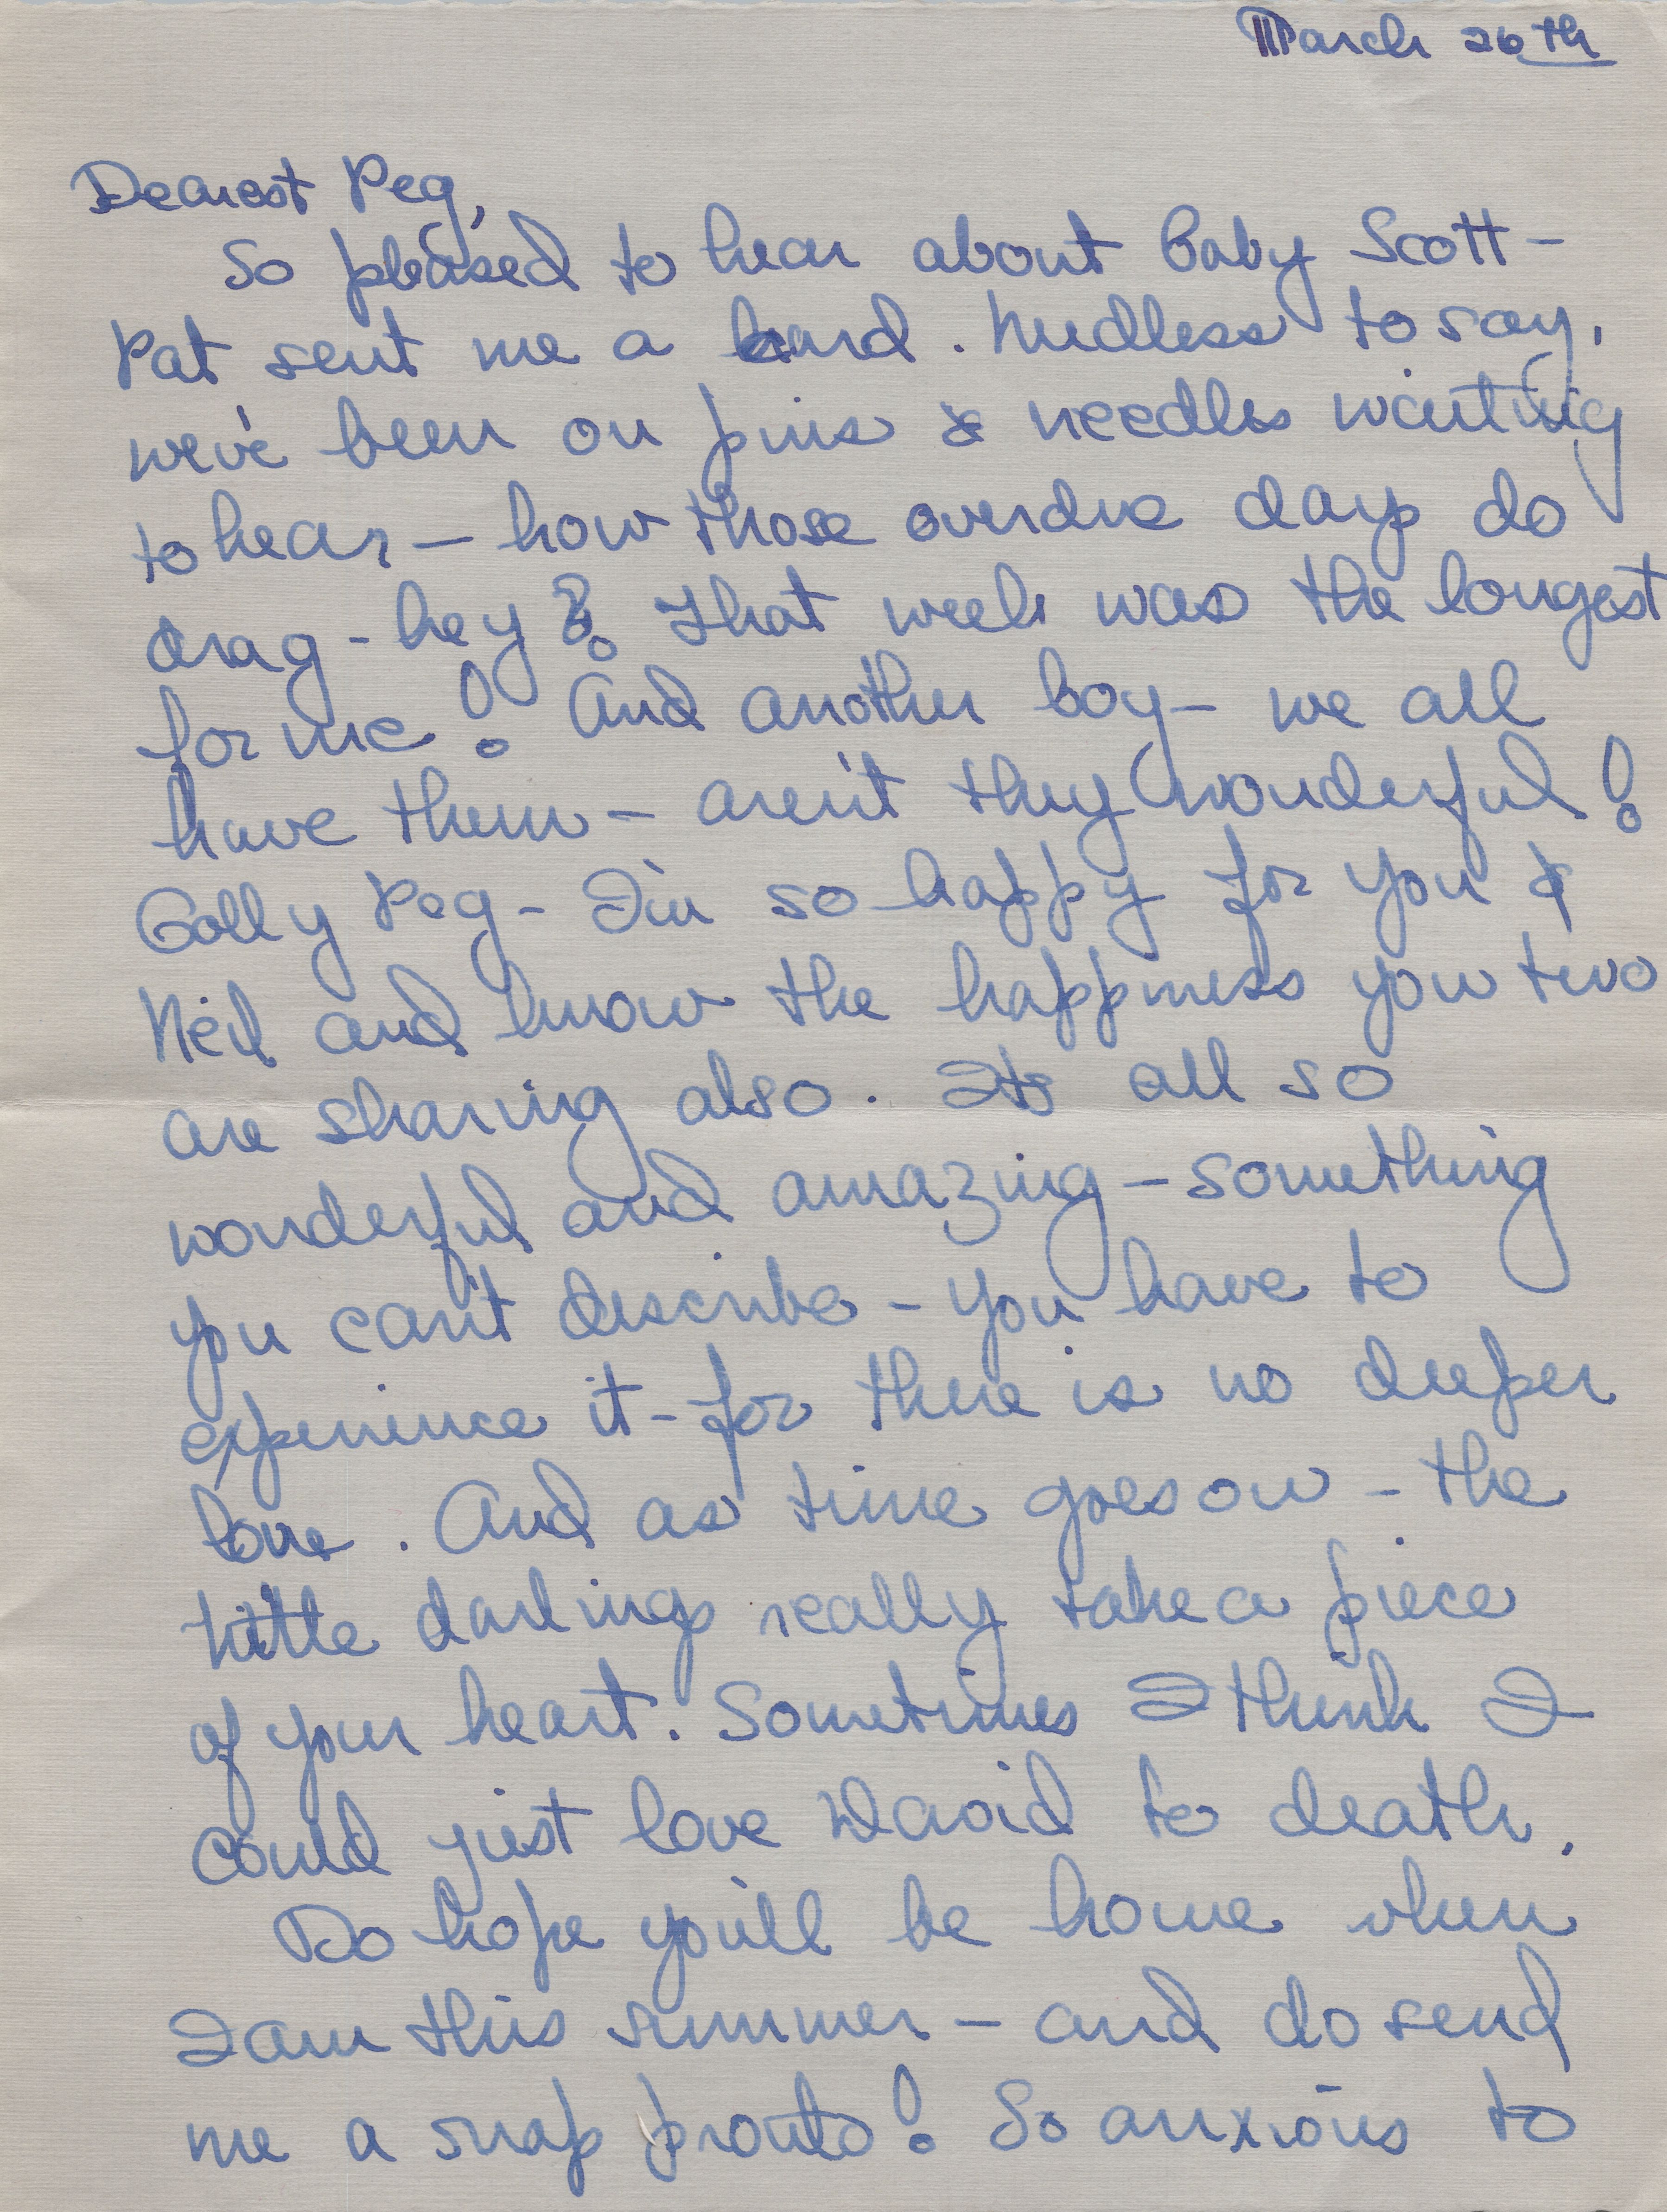 March 26th
Dearest Peg,
So pleased to hear about Baby Scott -
Pat sent me a card. Needless to say,
we've been on pins & needles waiting
to hear - how those overdue days do
drag - hey? That week was the longest
for me! And another boy - we all
have them - aren't they wonderful!
Golly Peg - I'm so happy for you &
Neil and know the happiness you two
are sharing also. Its all so
wonderful and amazing - something
you can't describe - you have to
experience it - for there is no deeper
love. And as time goes on - the
little darlings really take a piece
of your heart. Sometimes I think I
could just love David to death.
Do hope you'll be home when
I am this summer - and do send
me a snap pronto! So anxious to